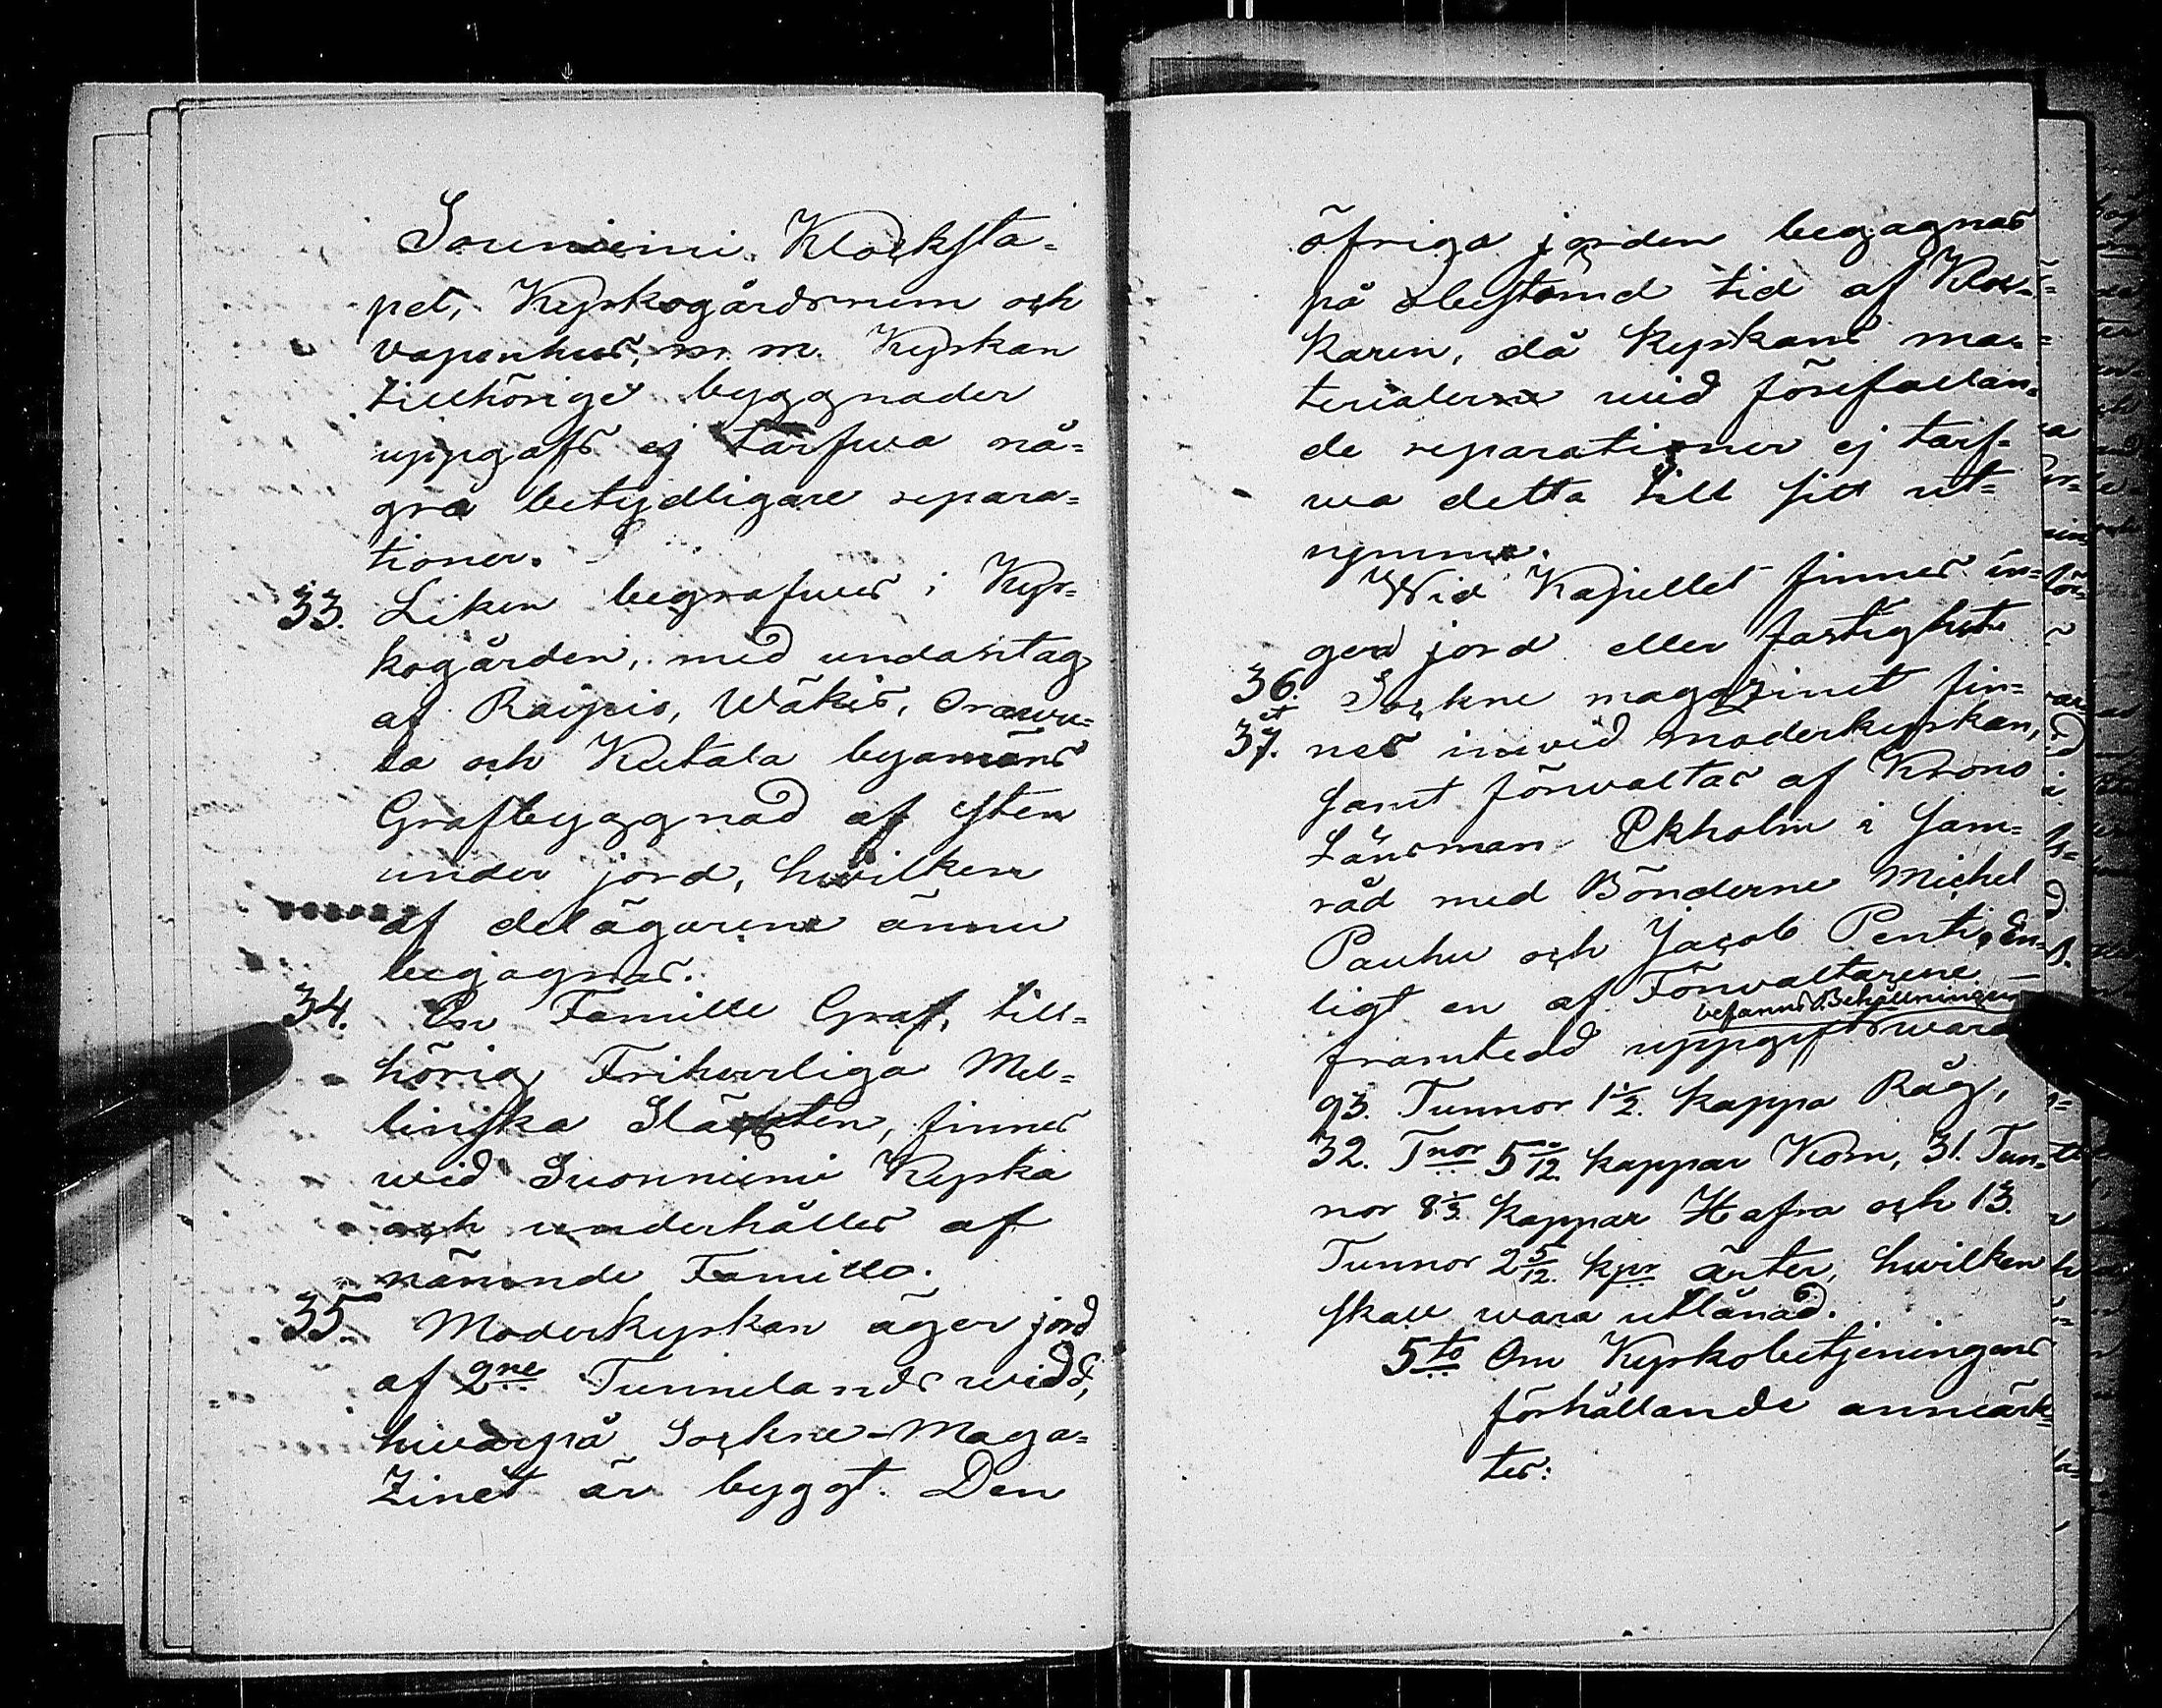 Souniemi. Klocksta-
pel, Kyrkogårdsmurn och
vapenhus, m. m. Kyrkan
tillhörige byggnader
uppgafs ej tarfwa nå-
gra betydligare repara-
tioner.
33. Liken begrafwes i Kyr-
kogården, med undantag
af Raipio, Wäkis,
la och Kutala byamäns
Grafbyggnad af sten
under jord, hwilken
af delägarene ännu
begagnas.
34. En Famille Graf, till-
hörig Friherrliga Mel-
linska Släkten, finnes
wid Suoniemi Kyrka
och underhålles af
nämnde Famille.
35. Moderkyrkan äger jord
af 2ne Tunnelands widd,
hwarpå Sockne-Maga-
zinet är byggt. Den
öfriga jorden begagnas
på obestämd tid af Kloc-
karen, då kyrkans ma-
terialerne wid förefallan-
de reparationer ej tarf-
wa detta till sitt ut-
rymme.
Wid Kapellet finnes in-
gen jord eller fastighet.
36. Sockne magazinet fin-
et
37. nes inwid moderkyrkan,
samt förwaltas af Krono
Länsman Ekholm i sam-
råd med Bönderne Michel
Pauhu och Jacob Penti. En-
ligt en af Förwaltarene
befanns Behållningen
framtedd uppgift wara
93. Tunnor 1 1/2. kappa Råg,
32. Tnor 5 /12. kappar Korn, 31. Tun-
nor 8 1/3. kappar Hafra och 13.
Tunnor 2 5/12. kpr ärter, hwilken
skall wara utlånad.
5to Om Kyrkobetjeningens
förhållande anmärk-
tes: